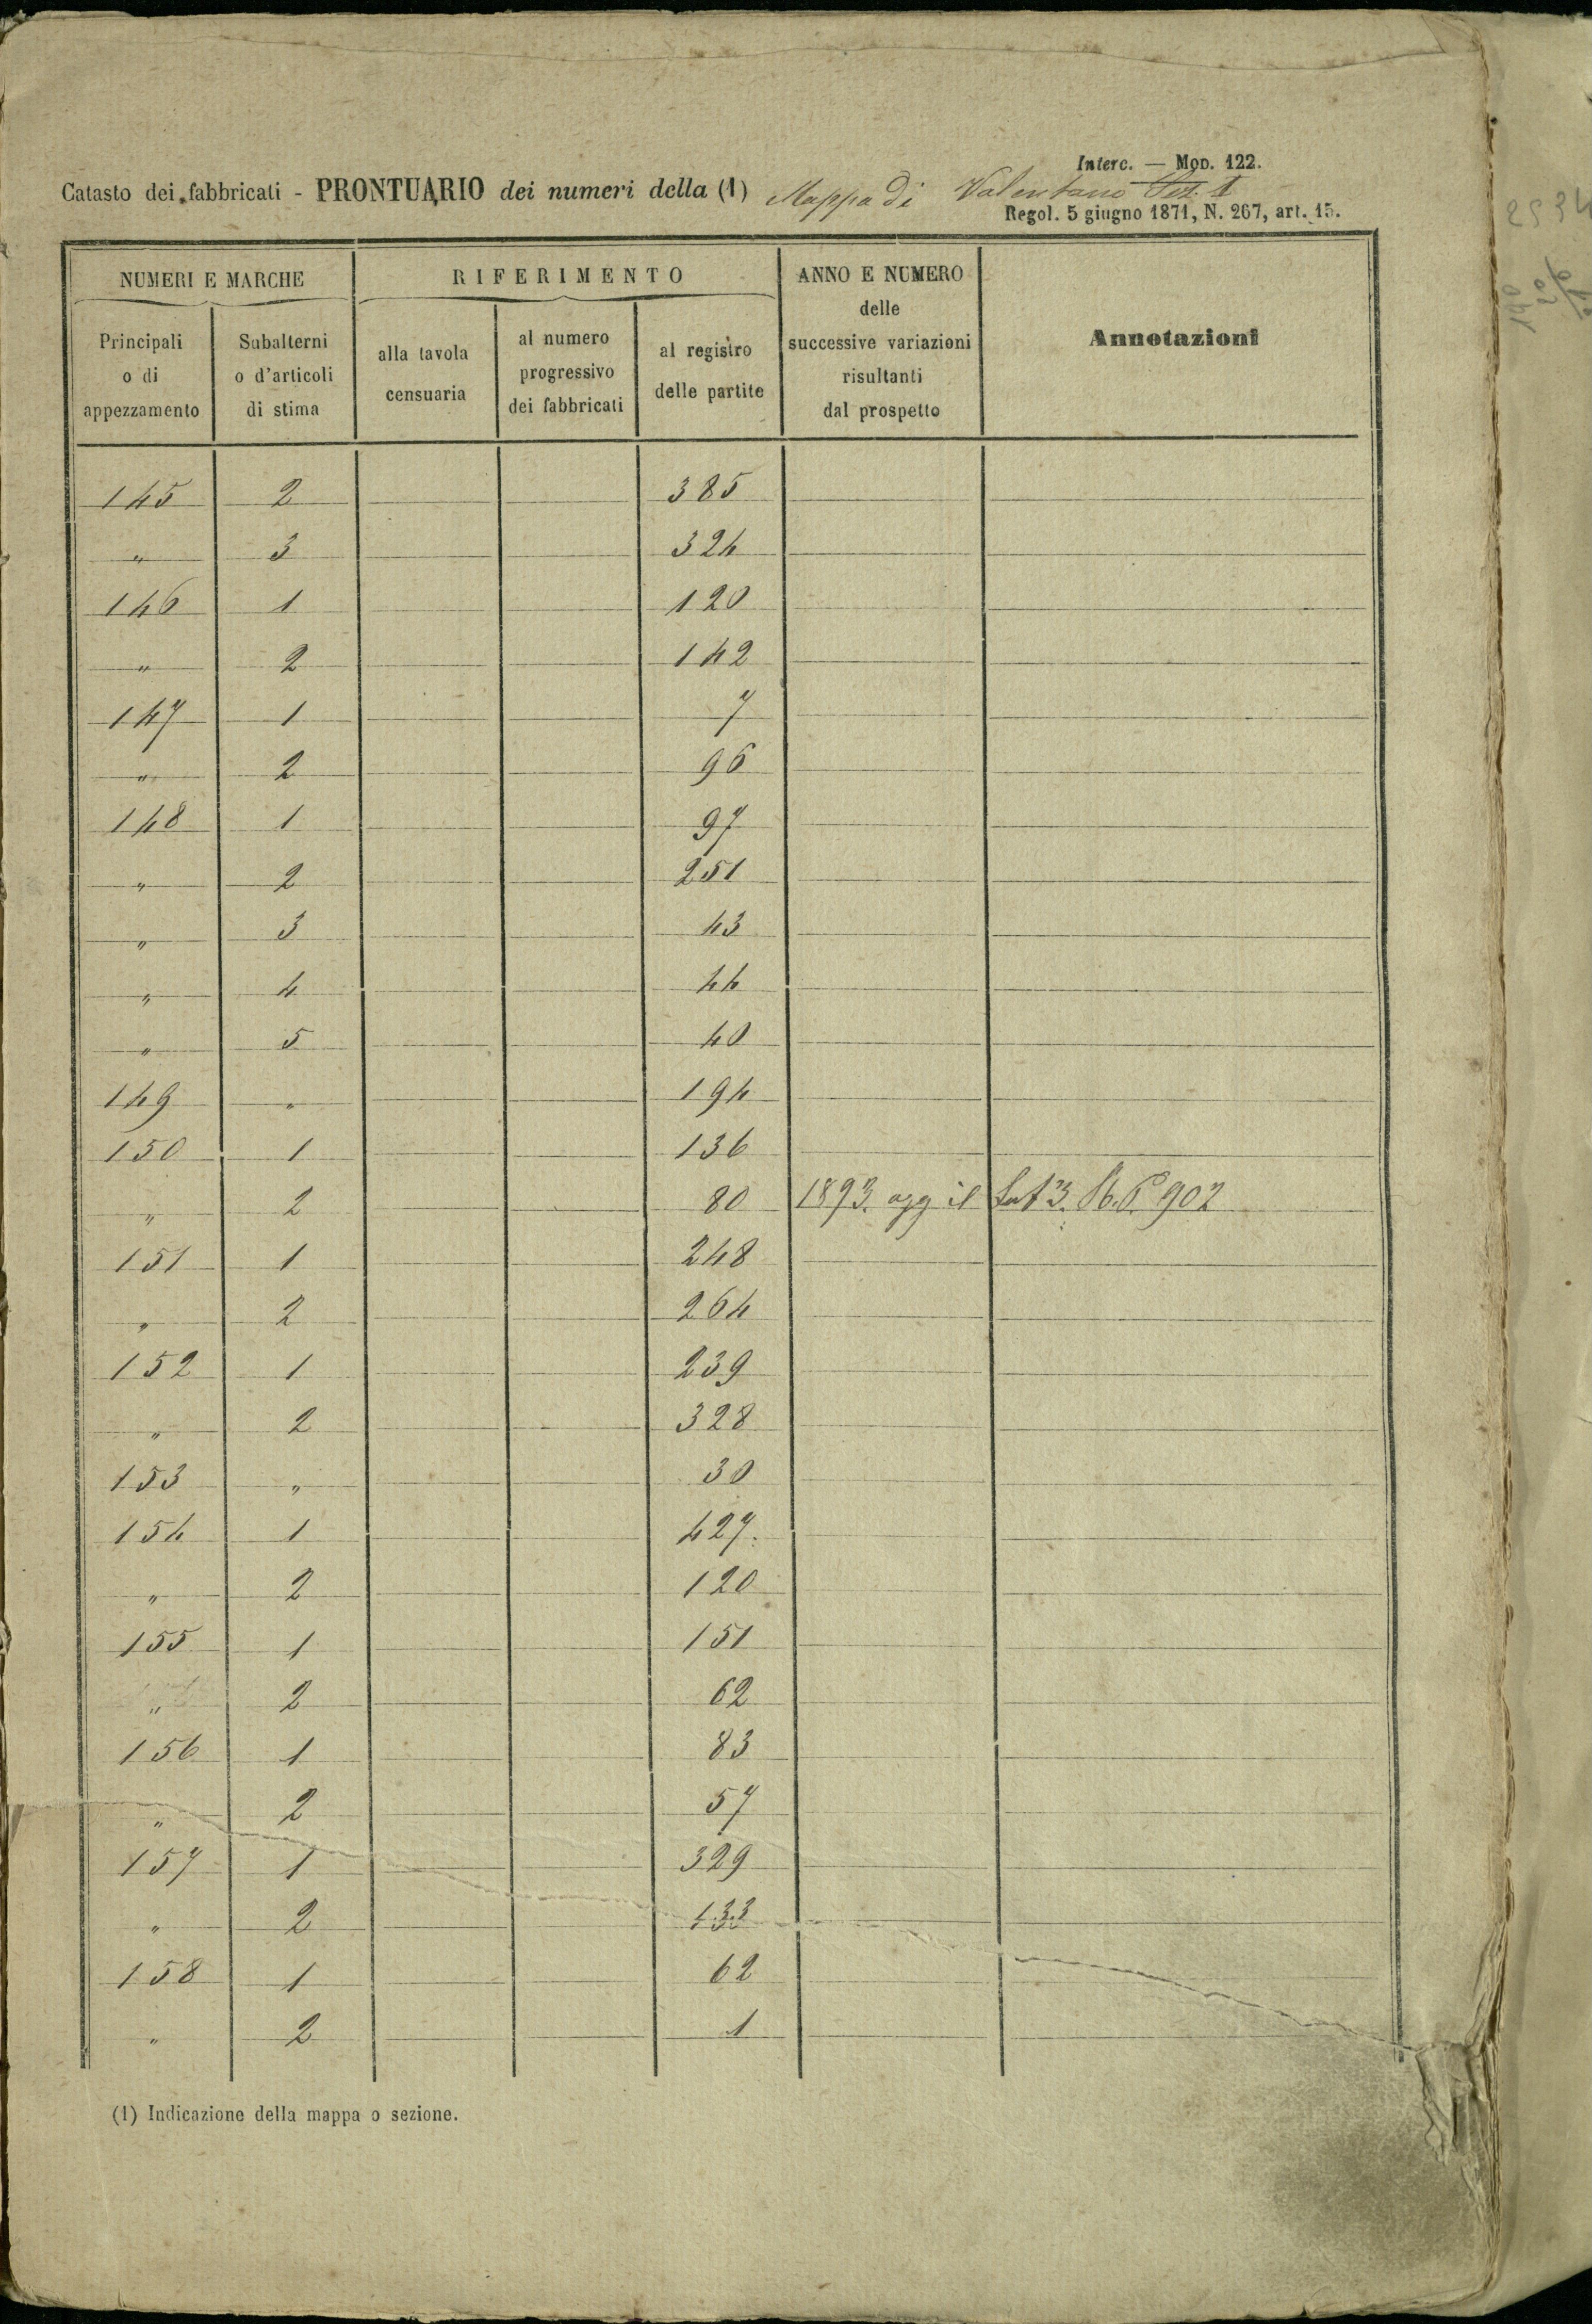 Interc. — Mod. 122.
Catasto dei fabbricati - PRONTUARIO dei numeri della (1) Mappa di Valentano Sez. 1
Regol. 5 giugno 1871, N. 267, art. 15.
NUMERI E MARCHE RIFERIMENTO ANNO E NUMERO delle successive variazioni risultanti dal prospetto Annotazioni
Principali o di appezzamento Subalterni o d'articoli di stima alla tavola censuaria al numero progressivo dei fabbricati al registro delle partite
145 2 385
" 3 324
146 1 120
" 2 142
147 1 7
" 2 96
148 1 97
" 2 251
" 3 43
" 4 44
" 5 40
149 " 194
150 1 136
" 2 80 1893. agg il 3. 902
151 1 248
" 2 264
152 1 239
" 2 328
153 " 30
154 1 427.
" 2 120
155 1 151
" 2 62
156 1 83
" 2 57
157 1 329
" 2 133
158 1 62
" 2 1
(1) Indicazione della mappa o sezione.